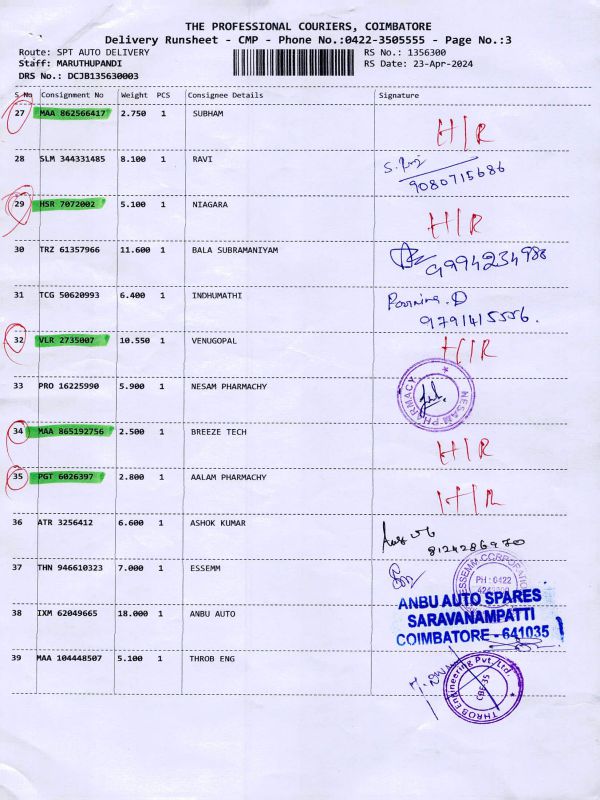 THE PROFESSIONAL COURIERS, COIMBATORE
Delivery Runsheet - CMP - Phone No.:0422-3505555 - Page No.:3
Route: SPT AUTO DELIVERY RS No.: 1356300
Staff: MARUTHUPANDI RS Date: 23-Apr-2024
DRS No.: DCJB135630003
S No Consignment No Weight PCS Consignee Details Signature
27 MAA 862566417 2.750 1 SUBHAM
H/R
28 SLM 344331485 8.100 1 RAVI
9080715686
29 HSR 7072002 5.100 1 NIAGARA
H/R
30 TRZ 61357966 11.600 1 BALA SUBRAMANIYAM
9994234988
31 TCG 50620993 6.400 1 INDHUMATHI Poornima.D
9791415556.
32 VLR 2735007 10.550 1 VENUGOPAL H/R
33 PRO 16225990 5.900 1 NESAM PHARMACHY
NESAM PHARMACY
34 MAA 865192756 2.500 1 BREEZE TECH
H/R
35 PGT 6026397 2.800 1 AALAM PHARMACHY
H/R
36 ATR 3256412 6.600 1 ASHOK KUMAR
8124286970
37 THN 946610323 7.000 1 ESSEMM
ESSEMM CORPORATION
PH : 0422
ANBU AUTO SPARES
38 IXM 62049665 18.000 1 ANBU AUTO SARAVANAMPATTI
COIMBATORE - 641035
39 MAA 104448507 5.100 1 THROB ENG
THROB Engineering Pvt/Ltd.
CBE-35